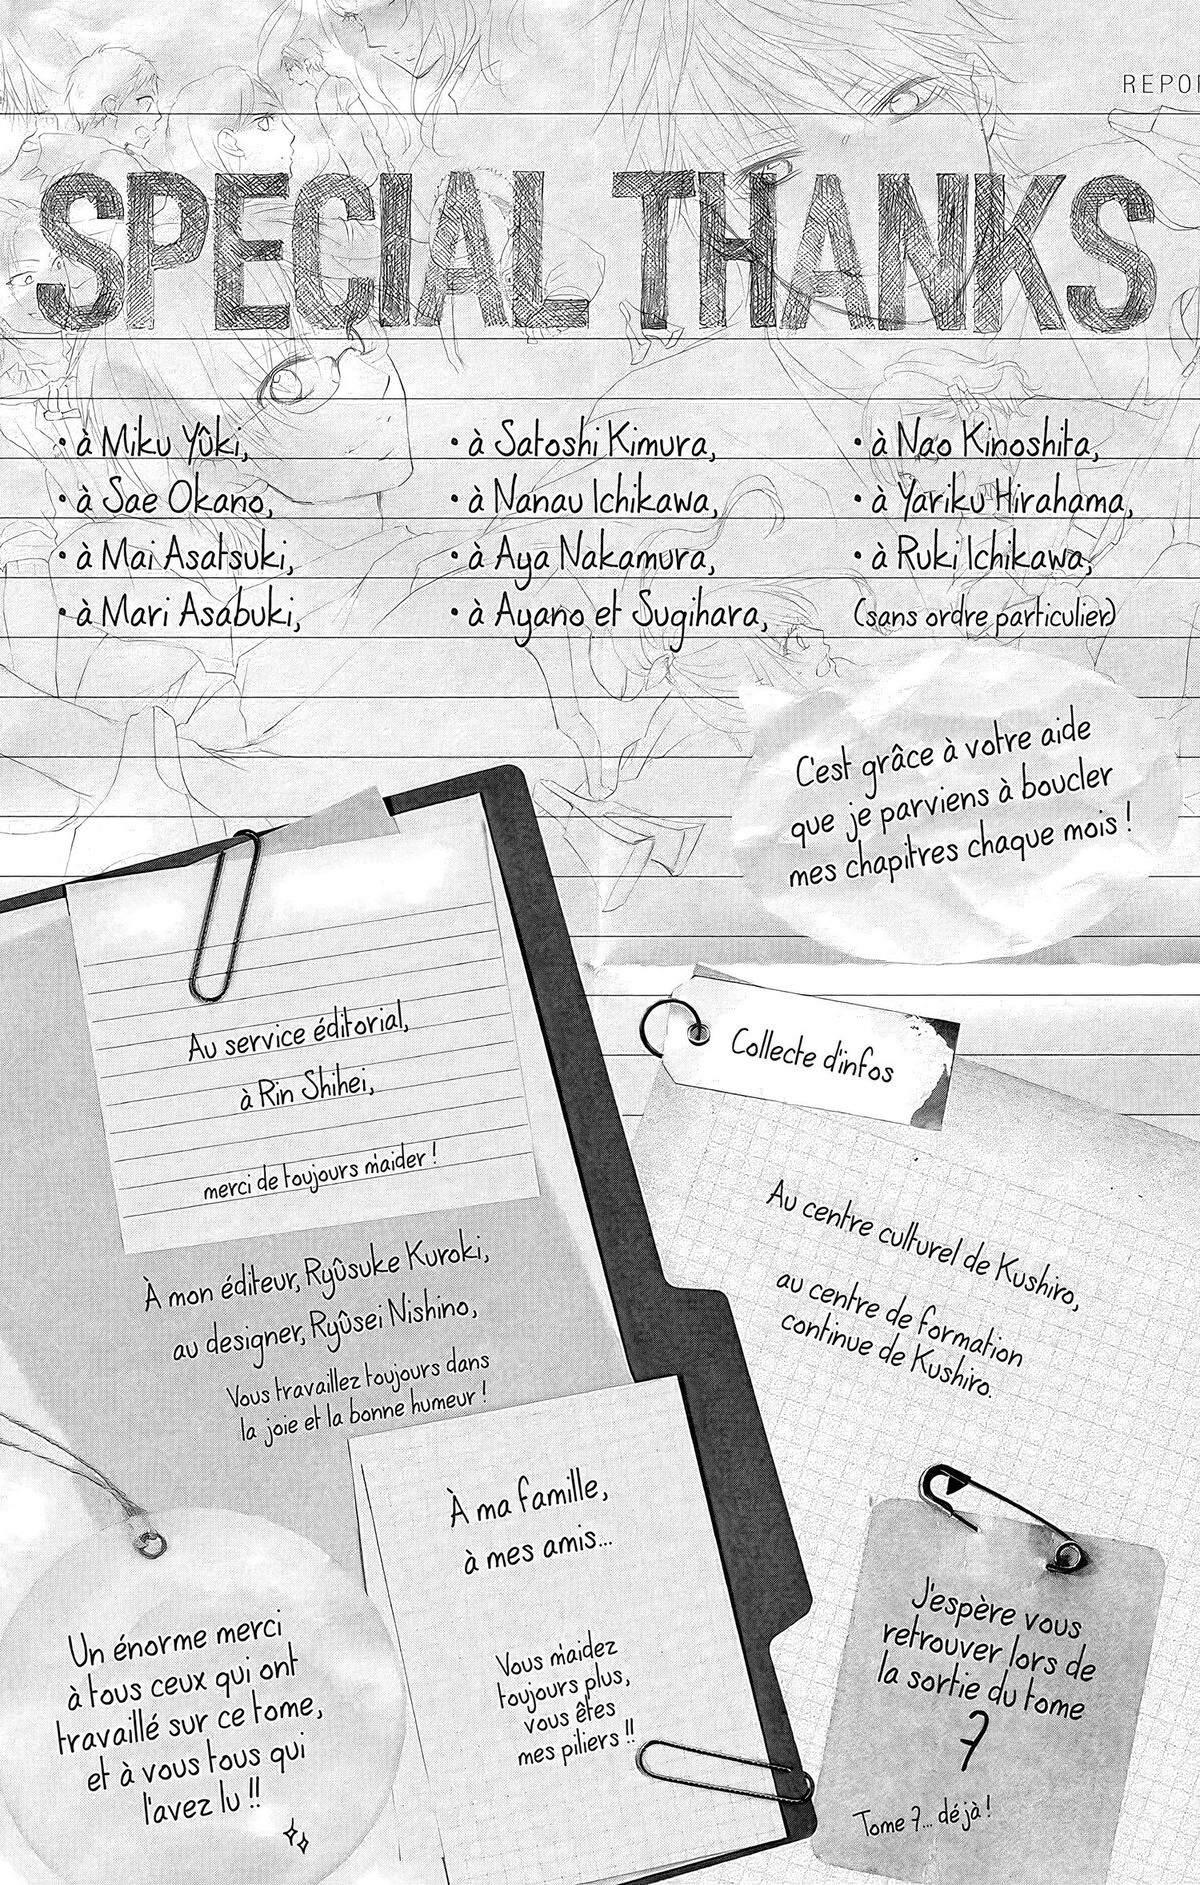 REPOR
SPECIAL THANKS
• à Miku Yûki,
• à Sae Okano,
• à Mai Asatsuki,
• à Mari Asabuki,
• à Satoshi Kimura,
• à Nanau Ichikawa,
• à Aya Nakamura,
• à Ayano et Sugihara,
• à Nao Kinoshita,
• à Yariku Hirahama,
• à Ruki Ichikawa,
(sans ordre particulier)
C'est grâce à votre aide
que je parviens à boucler
mes chapitres chaque mois !
Au service éditorial,
à Rin Shihei,
merci de toujours m'aider !
À mon éditeur, Ryûsuke Kuroki,
au designer, Ryûsei Nishino,
Vous travaillez toujours dans
la joie et la bonne humeur !
Collecte d'infos
Au centre culturel de Kushiro,
au centre de formation
continue de Kushiro.
À ma famille,
à mes amis...
Vous m'aidez
toujours plus,
vous êtes
mes piliers !!
Un énorme merci
à tous ceux qui ont
travaillé sur ce tome,
et à vous tous qui
l'avez lu !!
J'espère vous
retrouver lors de
la sortie du tome
7
Tome 7... déjà !